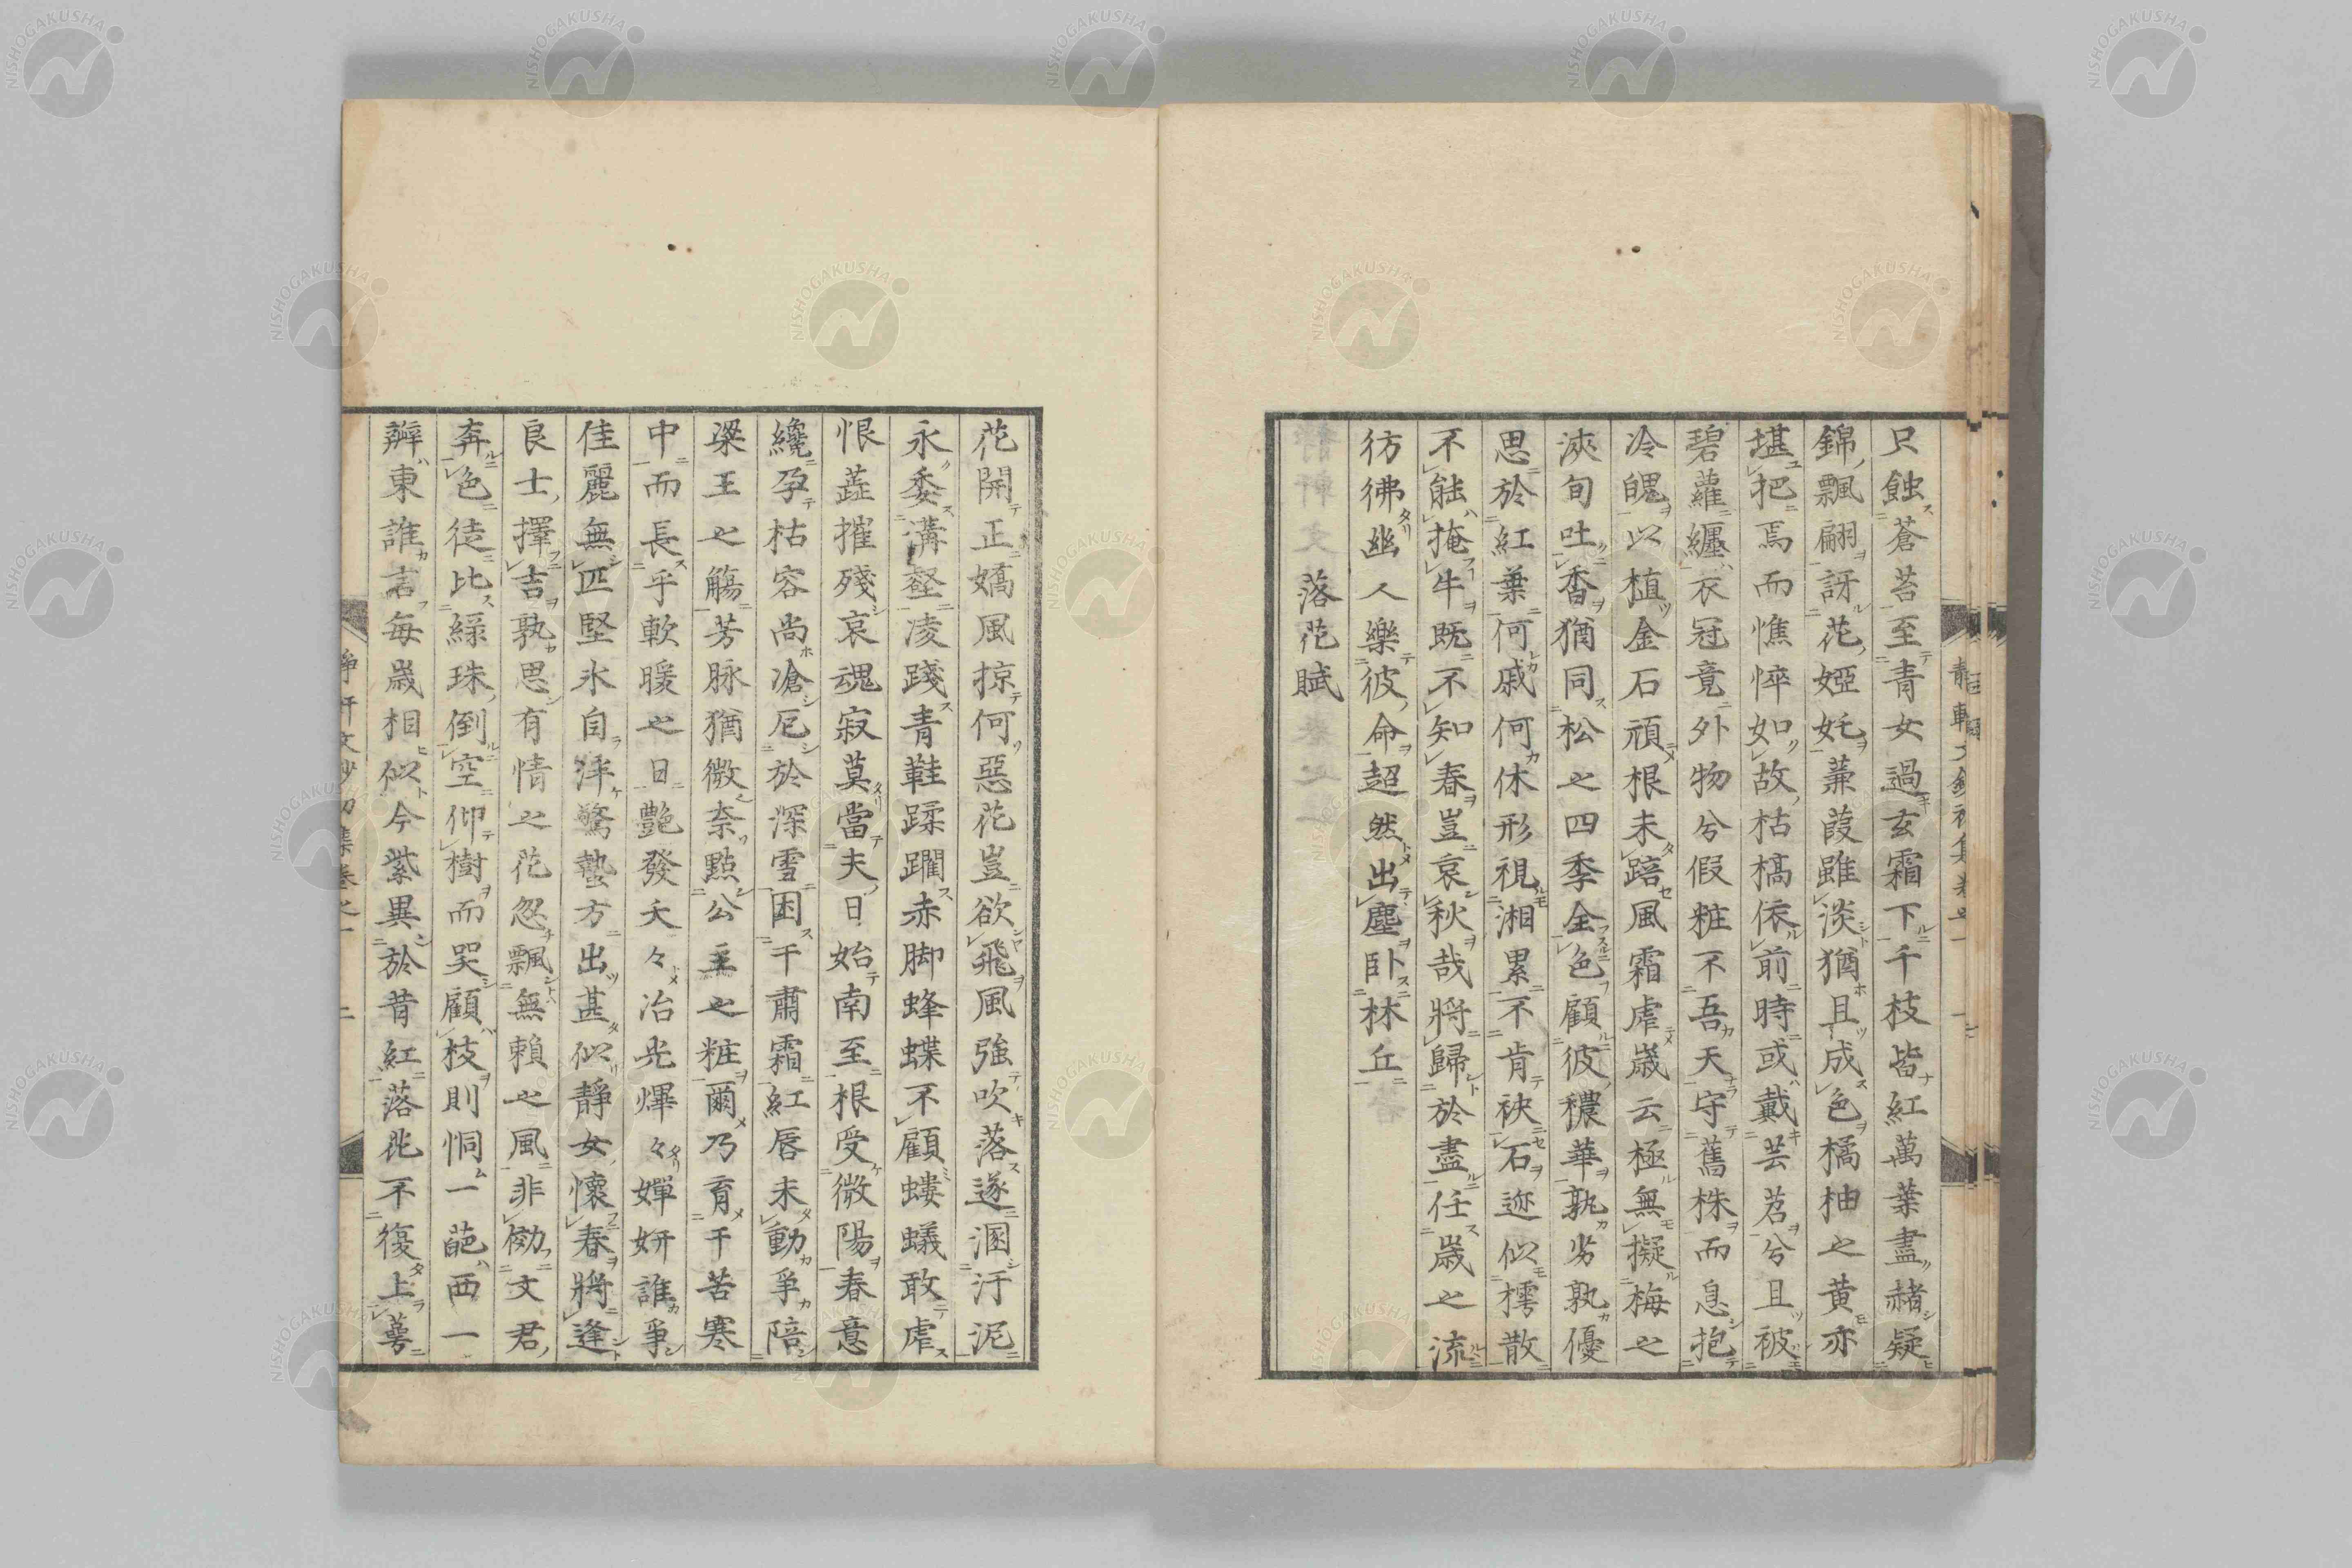 只蝕蒼苔至青女過玄霜下千枝皆紅萬葉盡赭疑
錦飄翩訝花婭妊蒹葭雖淡猶且成色橘柚之黄亦
堪把焉而憔悴如故枯槁依前時或戴芸苕兮且被
碧蘿纒衣冠竟外物兮假粧不吾天守舊株而息抱
冷魄以植金石頑根未踣風霜虐歳云極無擬梅之
浹旬吐香猶同松之四季全色顧彼穠華孰劣孰優
思於紅葉何戚何休形視湘累不肯袂石迹似樗散
不能掩牛既不知春豈哀秋哉將歸於盡任歳之流
彷彿幽人樂彼命超然出塵卧林丘
落花賦
花開正嬌風掠何惡花豈欲飛風強吹落遂溷汙泥
永委溝壑凌踐青鞋蹂躙赤脚蜂蝶不顧螻蟻敢虐
恨蘂摧殘哀魂寂莫當夫日始南至根受微陽春意
纔孕枯容尚滄厄於深雪困于肅霜紅唇未動爭陪
梁王之觴芳脉猶微奈點公主之粧爾乃育于苦寒
中而長乎軟暖之日艶發夭々冶光煇々嬋妍誰爭
佳麗無匹堅氷自泮驚蟄方出甚似靜女懷春將逢
良士擇吉孰思有情之花忽飄無頼之風非俲文君
奔色徒比緑珠倒空仰樹而哭顧枝則恫一葩西一
瓣東誰言毎歳相似今紫異於昔紅落花不復上萼
静軒文鈔初集卷之一 二